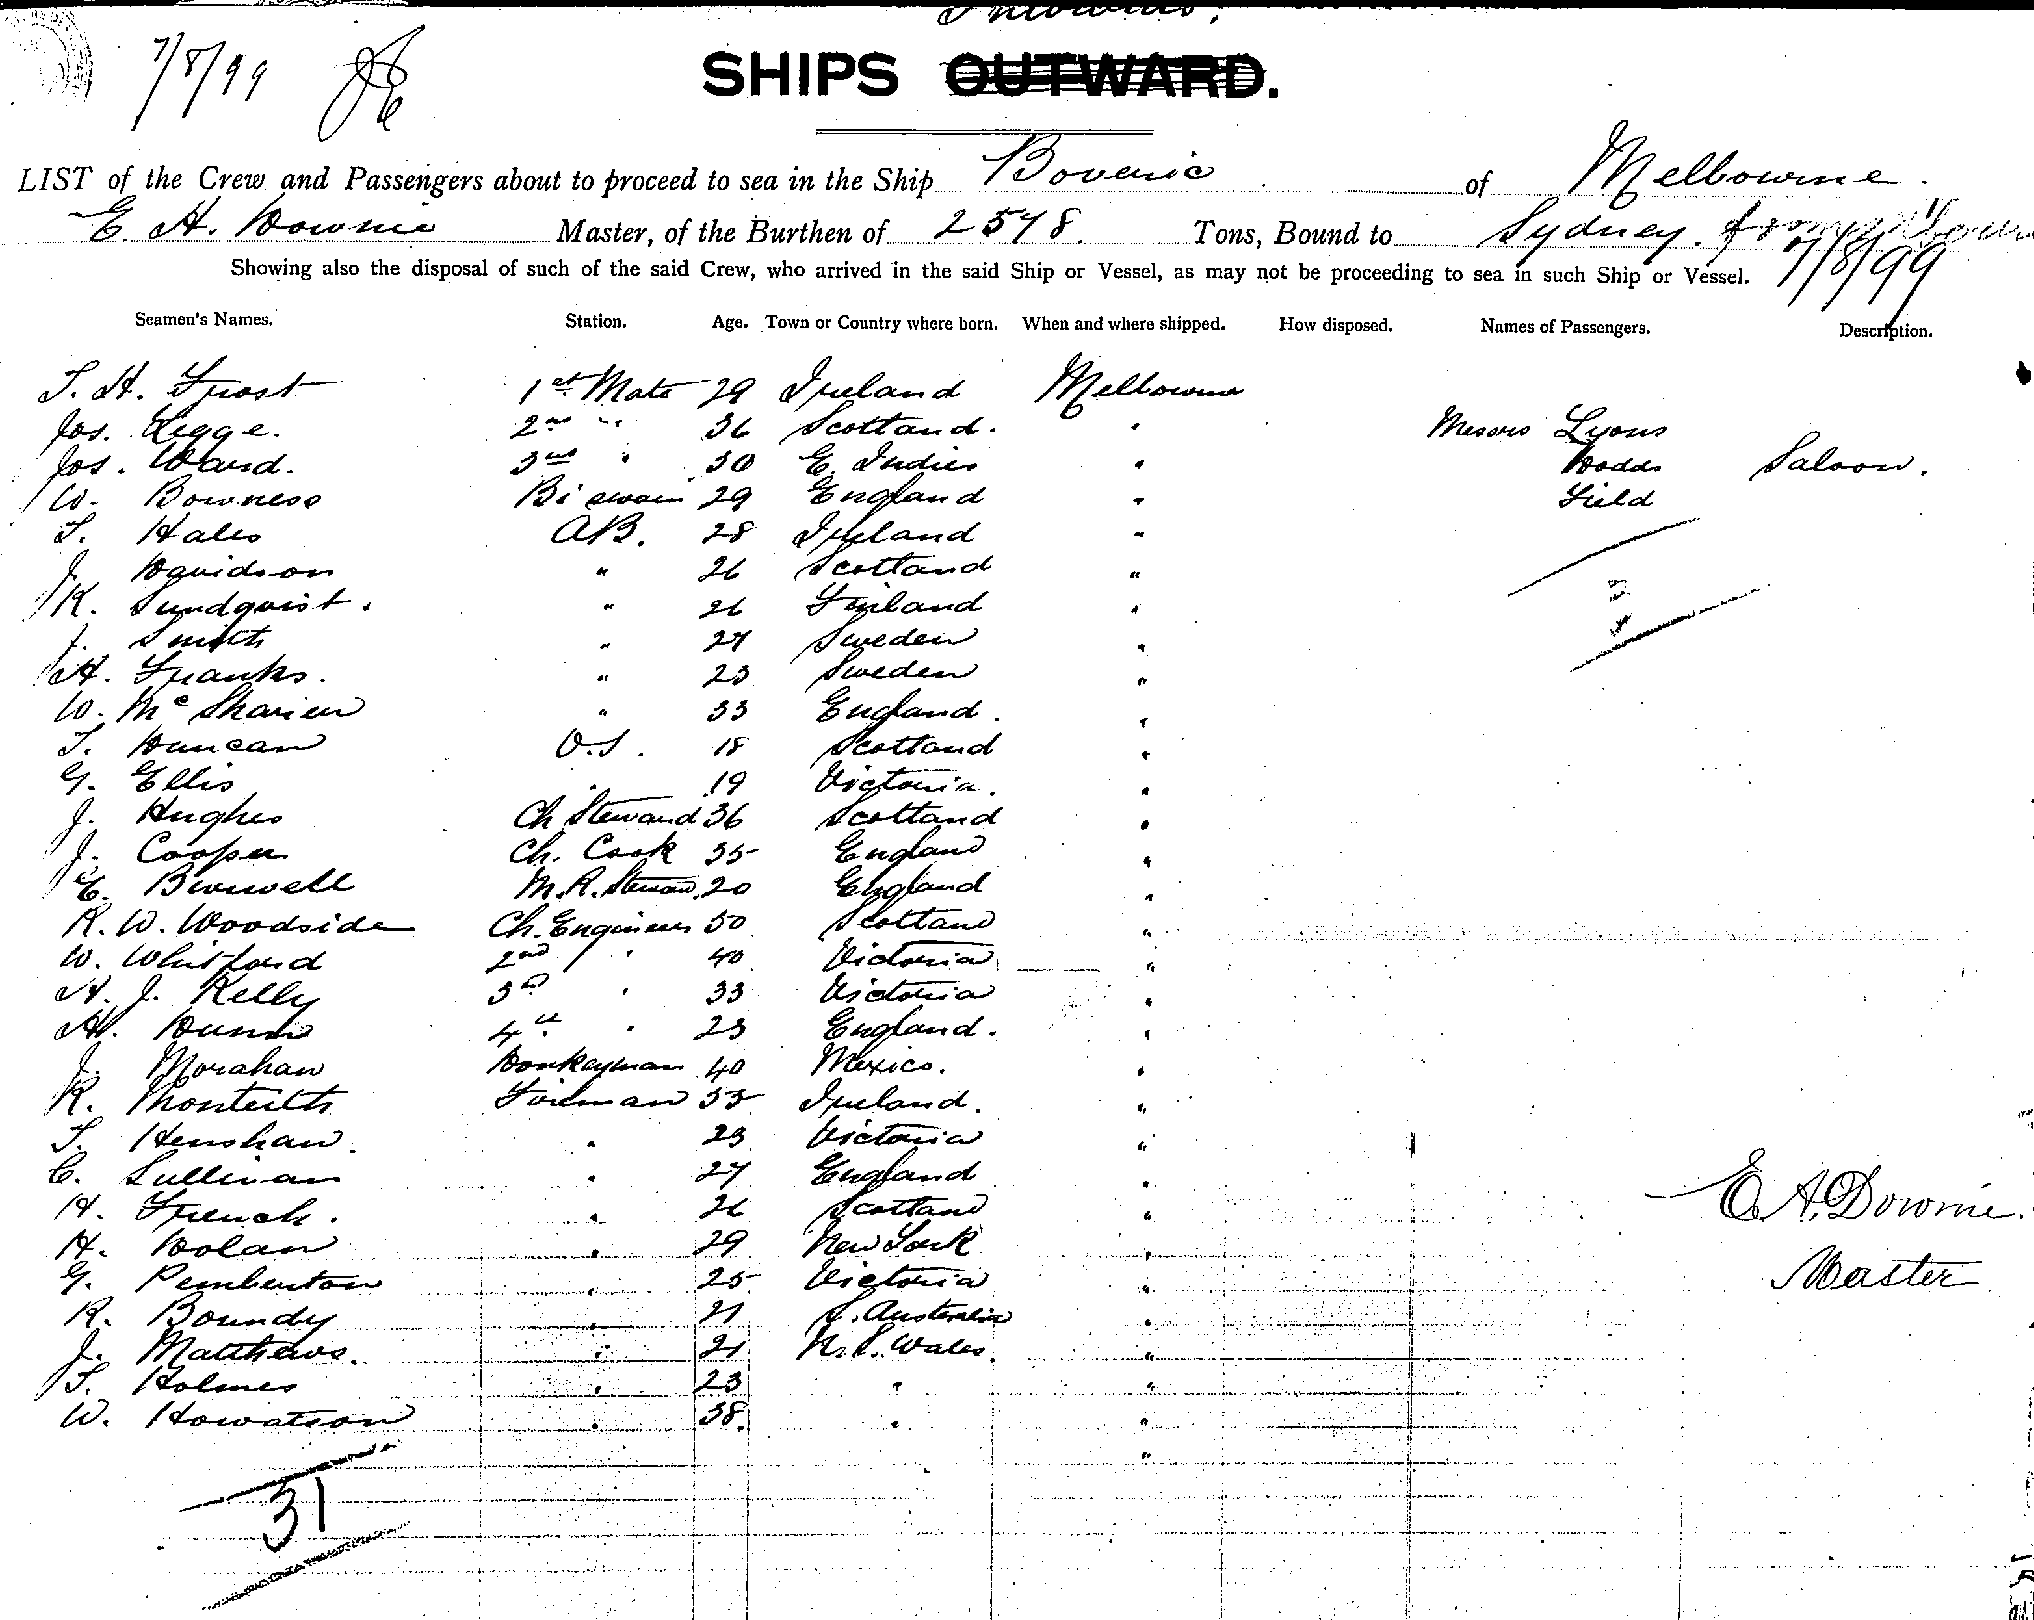 Inwards.
7/8/99
SHIPS OUTWARD.
LIST of the Crew and Passengers about to proceed to sea in the Ship Boveric of Melbourne.
E. A. Downie Master, of the Burthen of 2578. Tons, Bound to Sydney. from
7/8/99
Showing also the disposal of such of the said Crew, who arrived in the said Ship or Vessel, as may not be proceeding to sea in such Ship or Vessel.
Seamen's Names. Station. Age. Town or Country where born. When and where shipped. How disposed. Names of Passengers. Description.
T. H. Frost 1st Mate 29 Ireland Melbourne
Jos. Legge. 2nd " 36 Scotland. " Messrs Lyons
Jos. Ward. 3rd " 30 E. Indies " Dodds Saloon.
W. Bowness 29 England " Field
T. Hales A.B. 28 Ireland "
J. Davidson " 26 Scotland "
K. Sundquist. " 26 Finland "
J. Smith " 27 Sweden "
A. Franks. " 23 Sweden "
W. Mc " 33 England. "
T. Duncan O.S. 18 Scotland "
G. Ellis " 19 Victoria. "
J. Hughes Ch Steward 36 Scotland "
J. Cooper Ch. Cook 35 England "
E. M.R. Steward 20 England "
R. W. Woodside Ch. Engineer 50 Scotland "
W. Whitford 2nd " 40 Victoria "
H. J. Kelly 3rd " 33 Victoria "
H. Dunn 4th " 23 England. "
J. Morahan Donkeyman 40 Mexico. "
R. Monteith Fireman 35 Ireland. "
T. Henshaw. " 23 Victoria "
C. Sullivan " 27 England "
H. French. " 26 Scotland "
H. Dolan " 29 New York "
G. Pemberton " 25 Victoria "
R. Boundy " 21 S. Australia "
J. Matthews. " 21 N. S. Wales. "
T. Holmes " 23 " "
W. Howatson " 38. " "
"
31
E. A. Downie.
Master